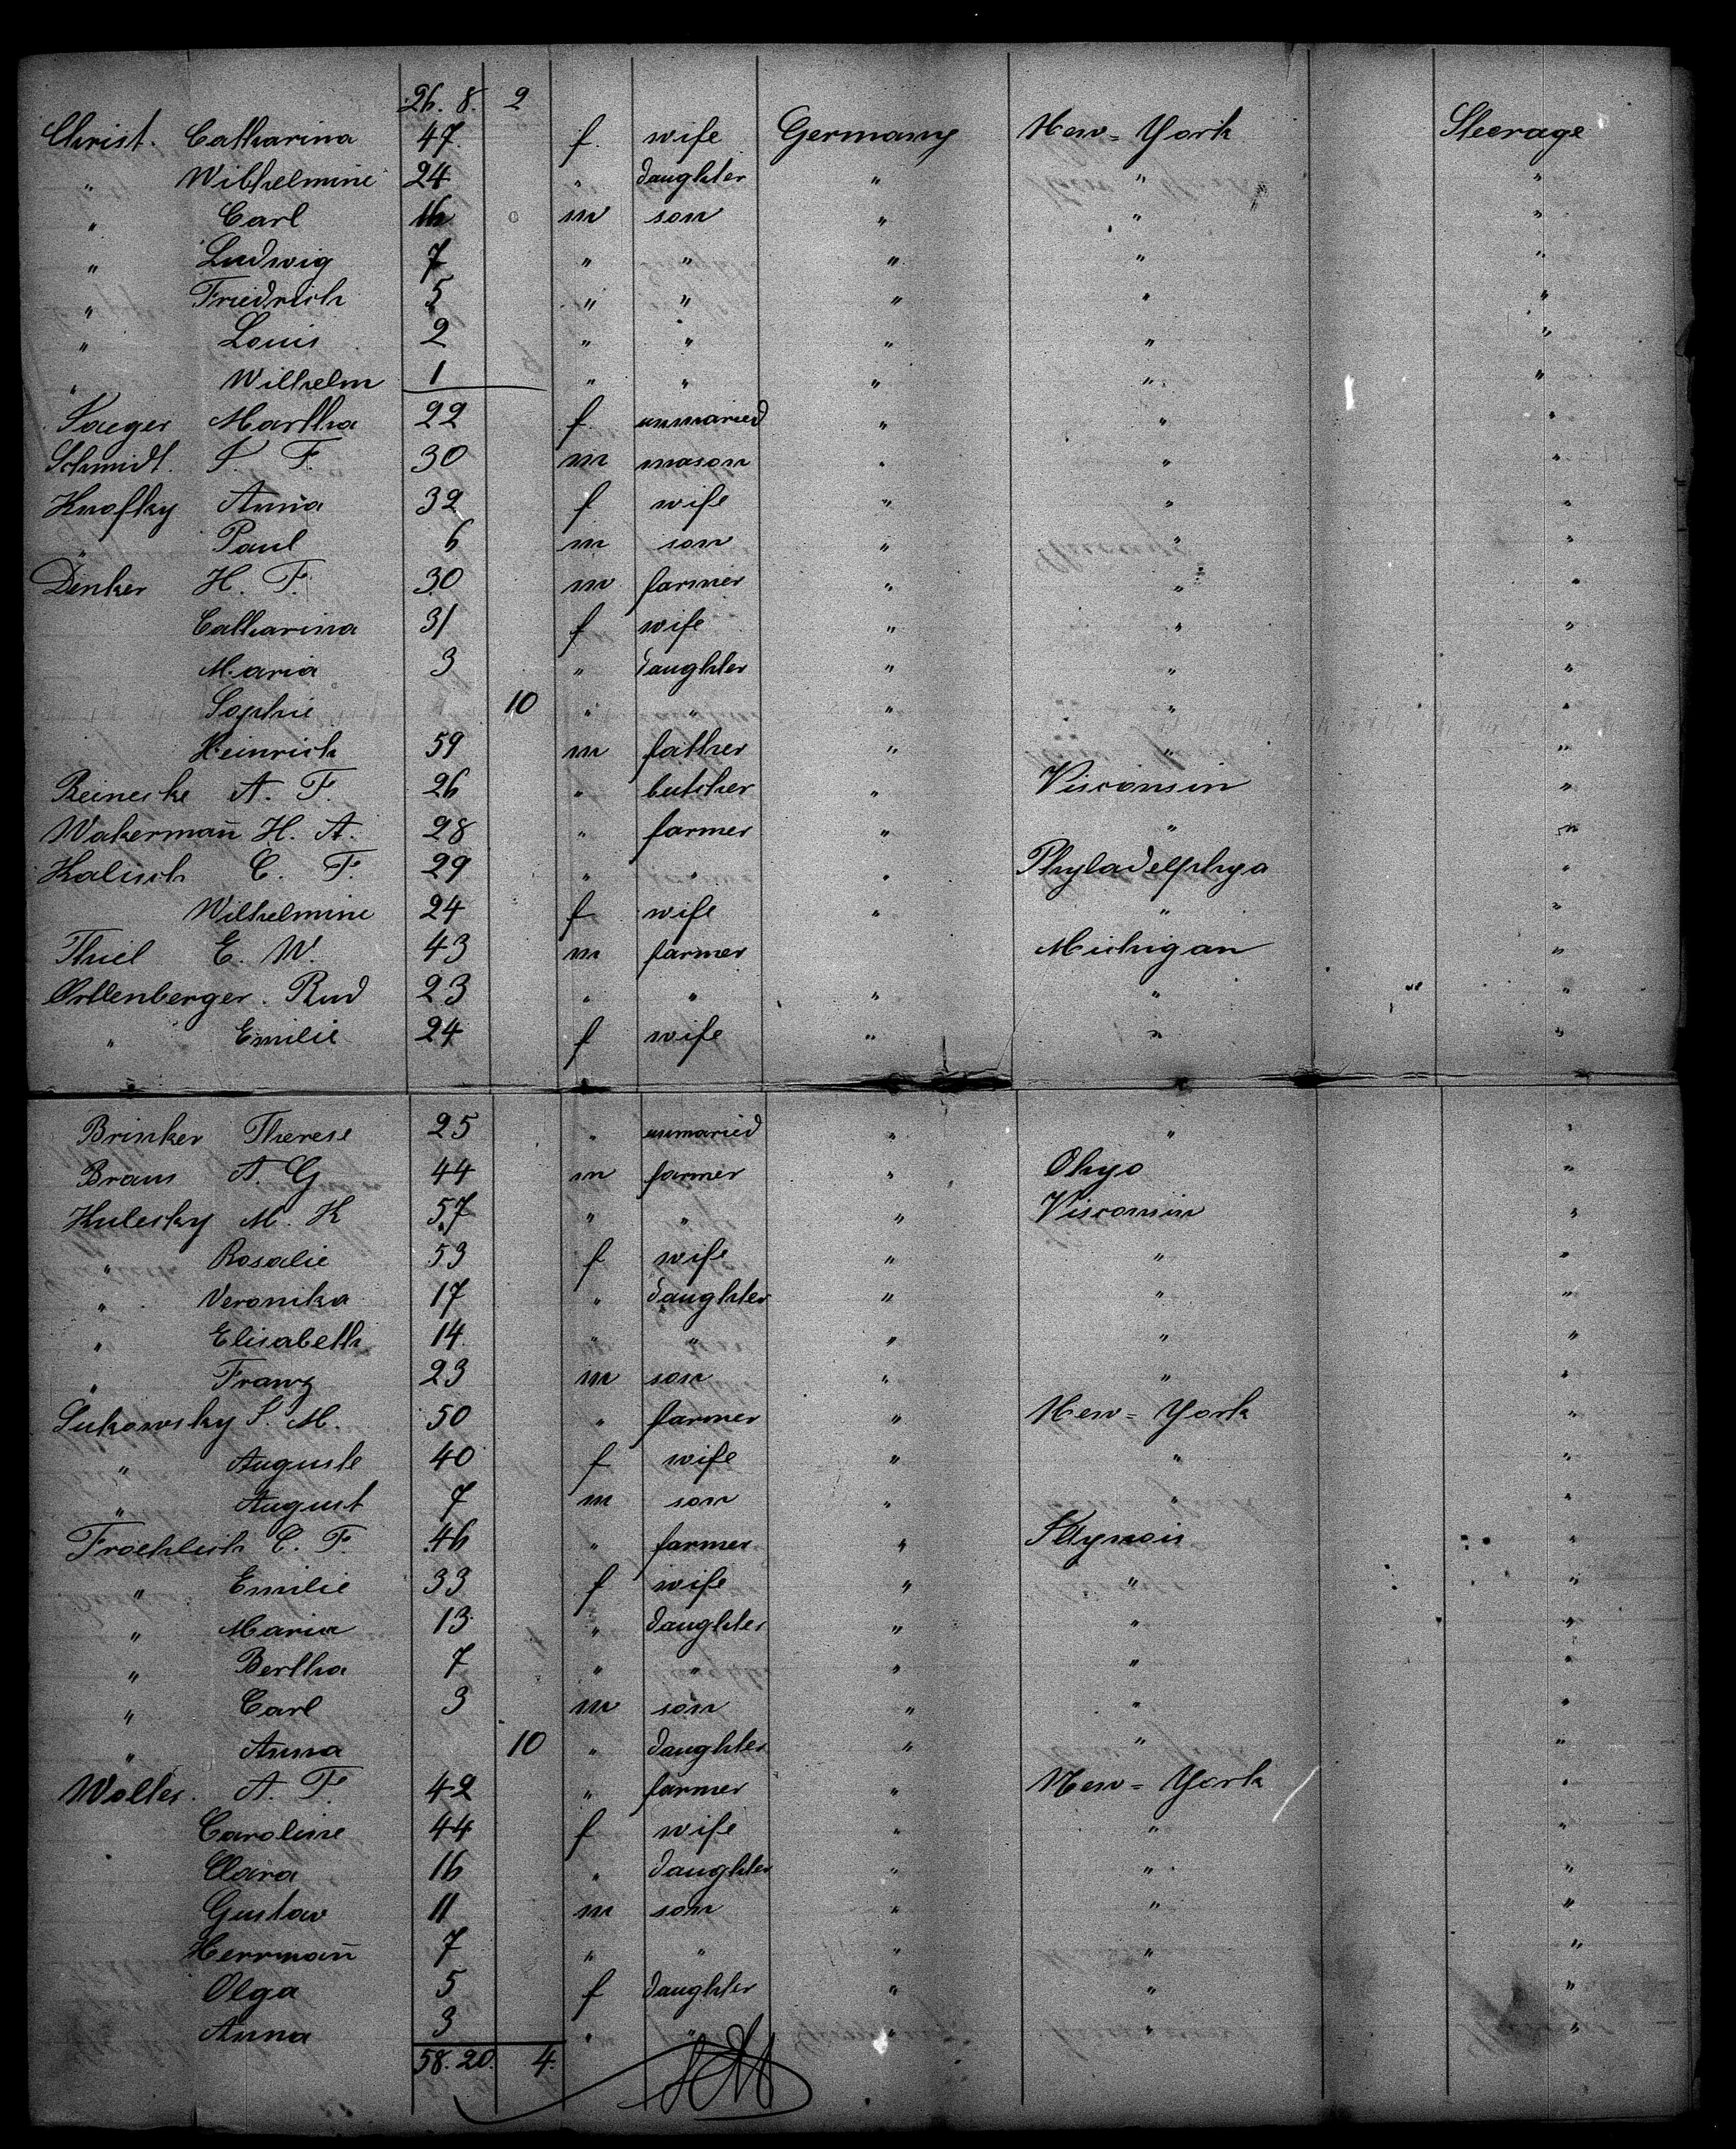 26. 8. 2
Christ. Catharina 47. f. wife Germany New-York Steerage
" Wilhelmine 24 " daughter " " "
" Carl 16 m son " " "
" Ludwig 7 " " " " "
" Friedrich 5 " " " " "
" Louis 2 " " " " "
" Wilhelm 1 " " " " "
Saeger Martha 22 f unmaried " " "
Schmidt. S. F. 30 m mason " " "
Knofky Anna 32 f wife " " "
" Paul 6 m son " " "
Denker H. F. 30 m farmer " " "
Catharina 31 f wife " " "
Maria 3 " daughter " " "
Sophie 10 " " " " "
Heinrich 59 m father " " "
Reineske A. F. 26 " butcher " Visconsin "
Wakermañ H. A. 28 " farmer " " "
Kalisch C. F. 29 " " " Phyladelphya "
Wilhelmine 24 f wife " " "
Thiel E. W. 43 m farmer Michigan "
Ortlenberger. Rud 23 " " " " "
" Emilie 24 f wife " " "
Brinker Therese 25 " unmaried " " "
Braus A. G 44 m farmer " Ohyo "
Kulesky M. K 57 " " " Visconsin "
" Rosalie 53 f wife " " "
" Veronika 17 " daughter " " "
" Elisabeth 14. " " " " "
" Franz 23 m son " " "
Sukowsky S. M. 50 " farmer " New-York "
" Auguste 40 f wife " " "
" August 7 m son " " "
Froehlich C. F. 46 " farmer " Illynois "
" Emilie 33 f wife " " "
" Maria 13 " daughter " " "
" Bertha 7 " " " " "
" Carl 3 m son " " "
" Anna 10 " daughter " " "
Wolter. A. F. 42 " farmer " New-York "
Caroline 44 f wife " " "
Clara 16 " daughter " " "
Gustav 11 m son " " "
Herrmañ 7 " " " " "
Olga 5 f daughter " " "
Anna 3 " " " " "
58. 20. 4.